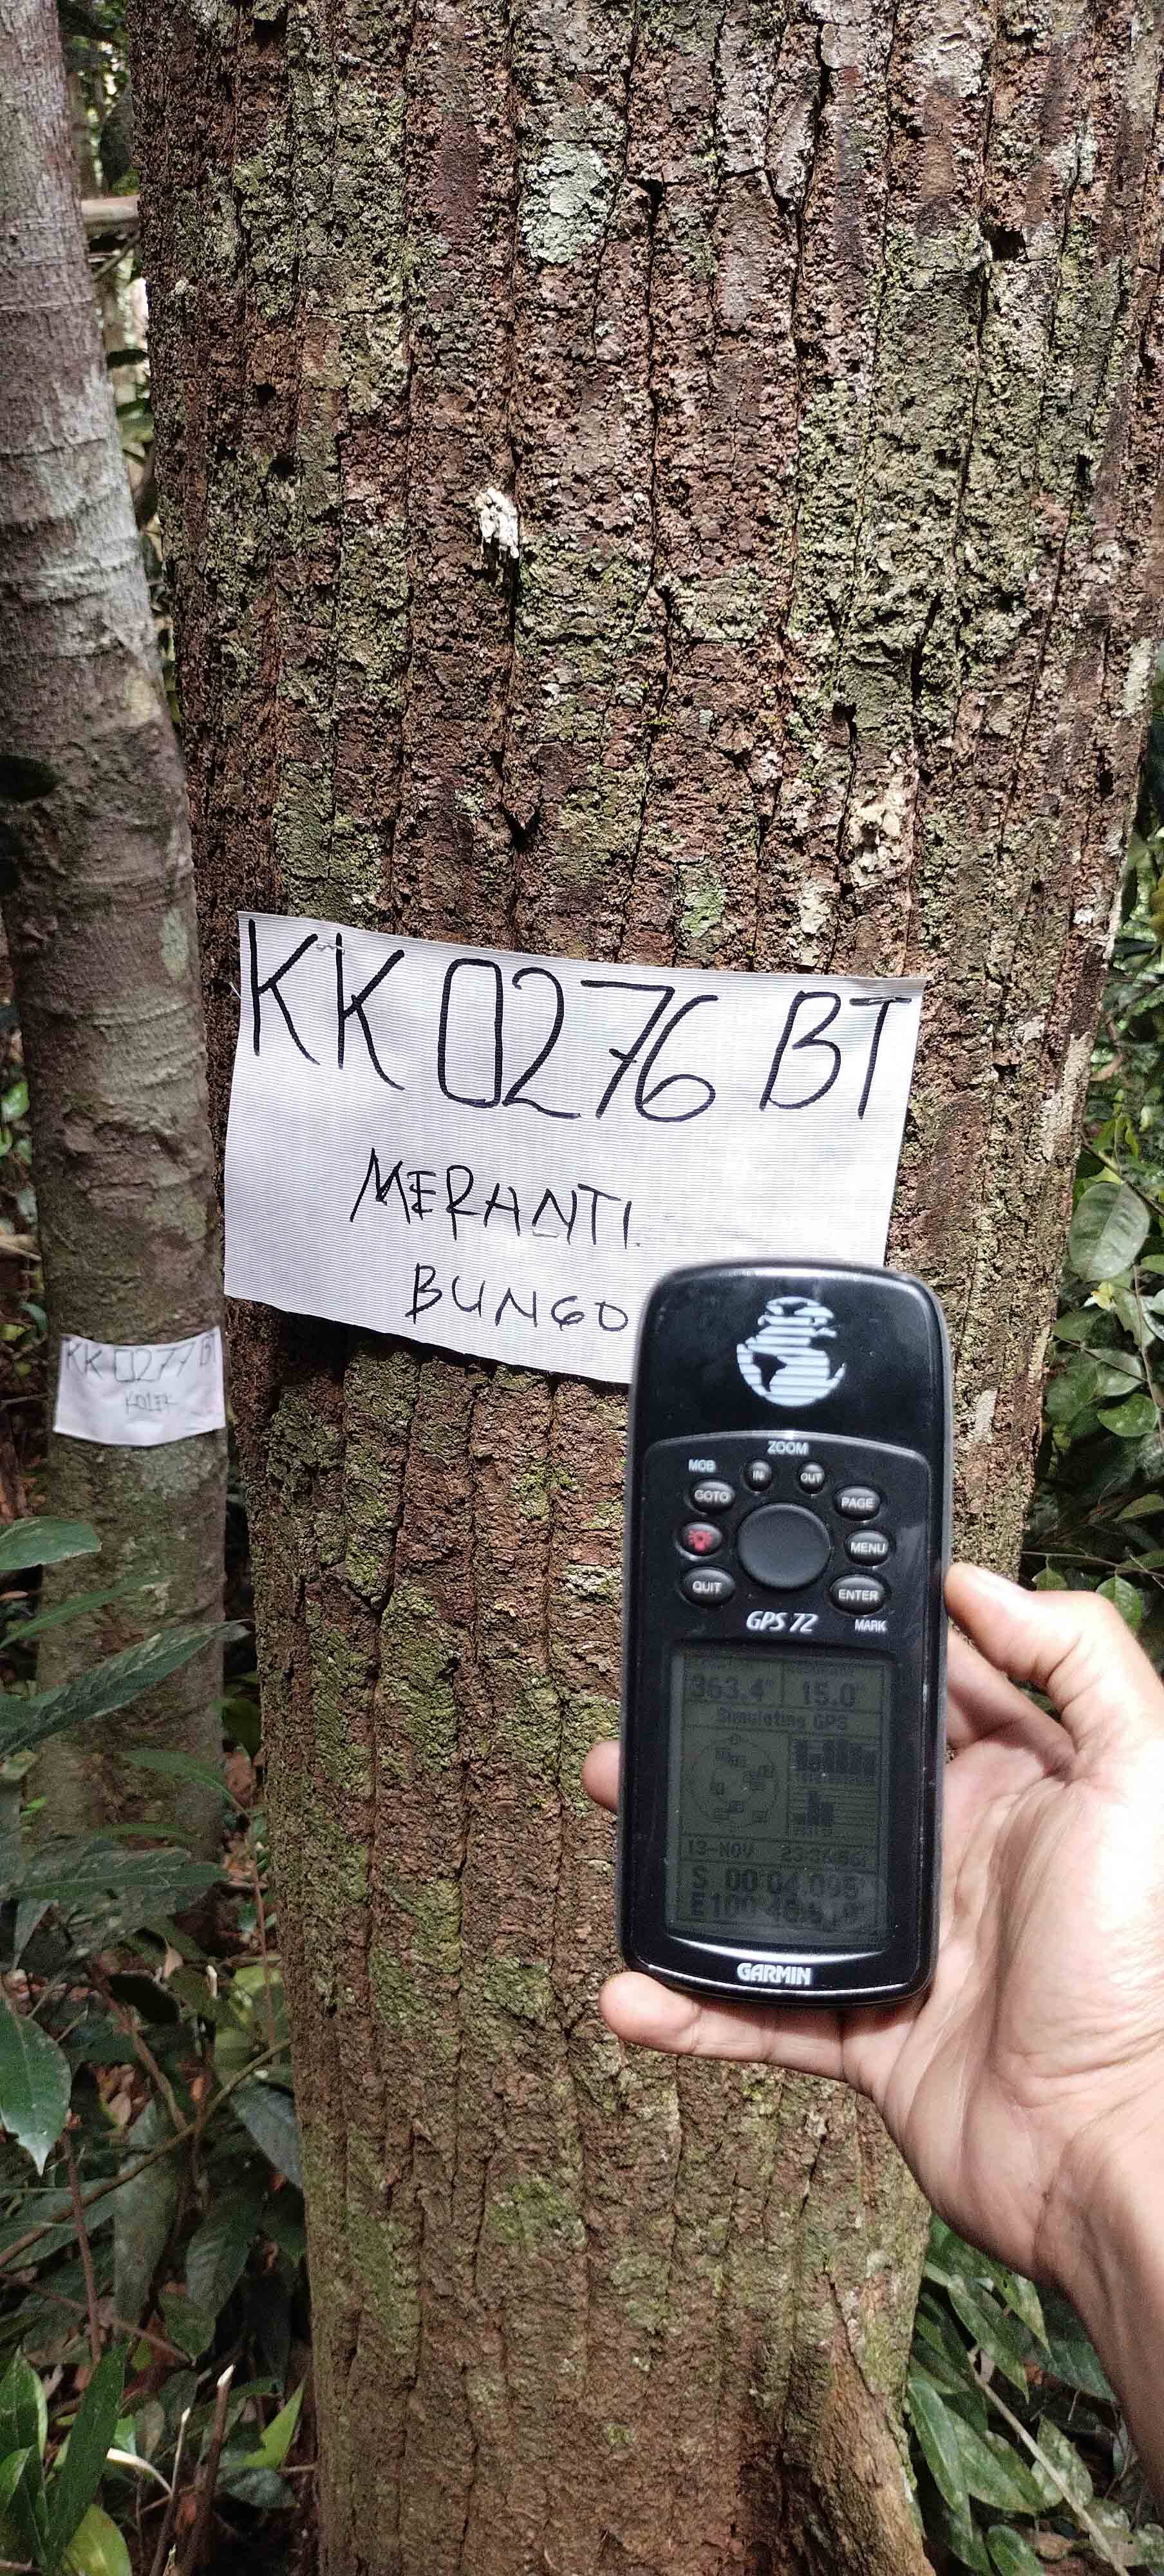 KK 0276 BT
MERANTI
BUNGO
KK 0277 BT
ZOOM
MOB
IN
OUT
GOTO
PAGE
MENU
QUIT
ENTER
GPS 72
MARK
363.4
15.0
Simulating GPS
13-NOV
S 00°04.095'
GARMIN